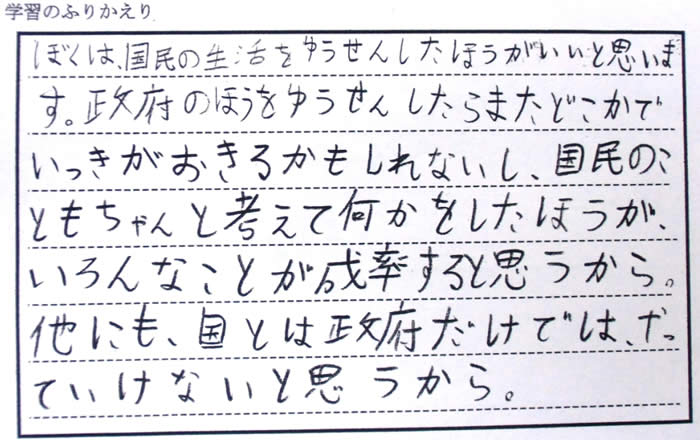 学習のふりかえり
ぼくは、国民の生活をゆうせんしたほうがいいと思いま
す。政府のほうをゆうせんしたらまたどこかで
いっきがおきるかもしれないし、国民のこ
ともちゃんと考えて何かをしたほうが、
いろんなことが成率すると思うから。
他にも、国とは政府だけでは、だっ
ていけないと思うから。